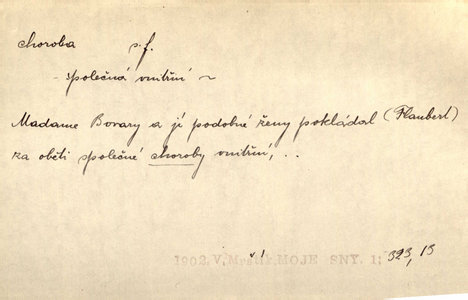 choroba s. f.
- společná vnitřní ~
Madame Bovary a jí podobné ženy pokládal (Flaubert)
za oběti společné choroby vnitřní, ..
1902. V. Mrštík. MOJE SNY. 1; 323, 13